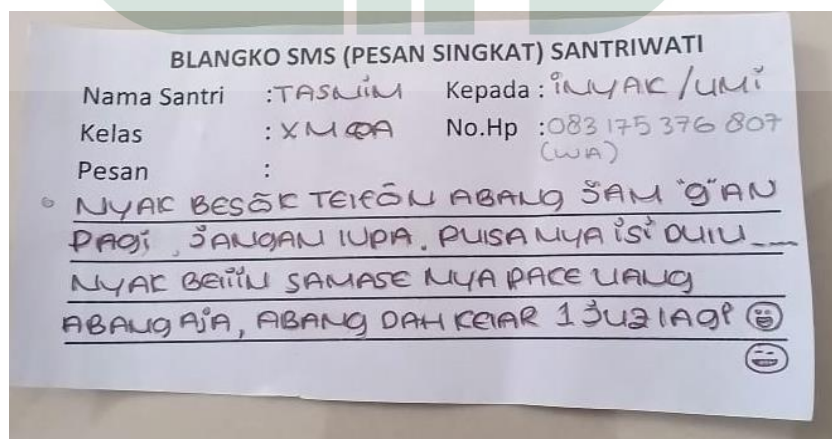 BLANGKO SMS (PESAN SINGKAT) SANTRIWATI
Nama Santri : TASNIM Kepada : INYAK / UMI
Kelas : XMQA No.Hp : 083 175 376 807
(WA)
Pesan :
NYAK BESOK TELFON ABANG JAM "9"AN
PAGI, JANGAN LUPA. PULSA NYA ISI DULU
NYAK BELIIN SAMASE NYA PAKE UANG
ABANG AJA, ABANG DAH KELAR 1 JUZ LAGI